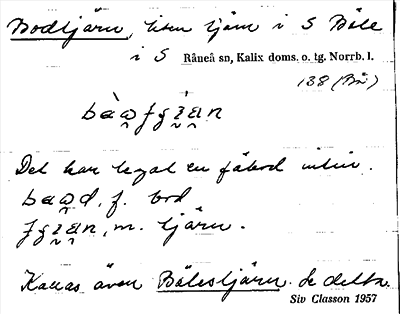 Bodtjärn, liten tjärn i S Böle
i S Råneå sn, Kalix doms. o. tg. Norrb. l.
138 (Bñ)
Det har legat en fäbod intill.
f. bod
m. tjärn.
Kallas även Bölestjärn. Se detta.
Siv Classon 1957